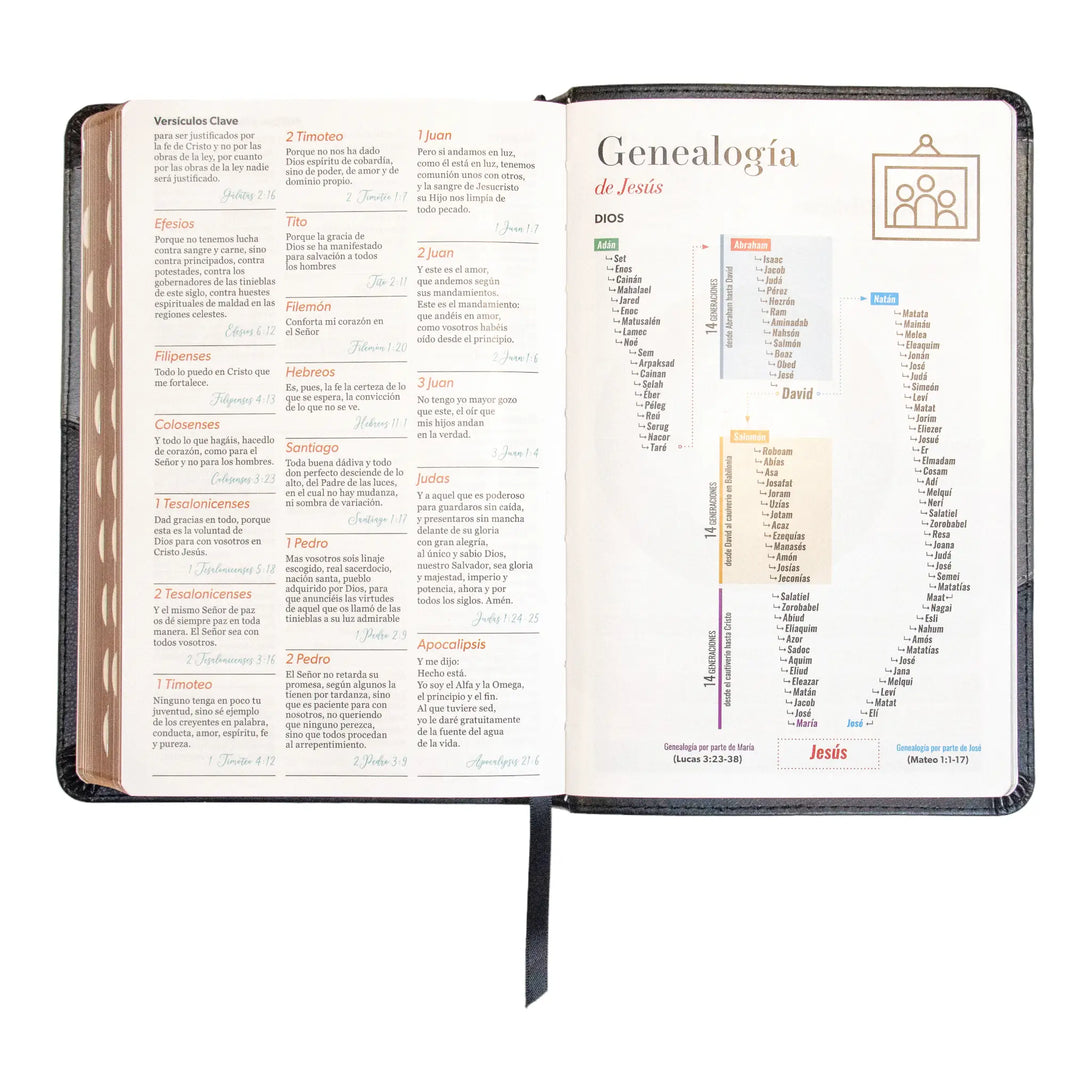 Versículos Clave
para ser justificados por
la fe de Cristo y no por las
obras de la ley, por cuanto
por las obras de la ley nadie
será justificado.
Gálatas 2:16
Efesios
Porque no tenemos lucha
contra sangre y carne, sino
contra principados, contra
potestades, contra los
gobernadores de las tinieblas
de este siglo, contra huestes
espirituales de maldad en las
regiones celestes.
Efesios 6:12
Filipenses
Todo lo puedo en Cristo que
me fortalece.
Filipenses 4:13
Colosenses
Y todo lo que hagáis, hacedlo
de corazón, como para el
Señor y no para los hombres.
Colosenses 3:23
1 Tesalonicenses
Dad gracias en todo, porque
esta es la voluntad de
Dios para con vosotros en
Cristo Jesús.
1 Tesalonicenses 5:18
2 Tesalonicenses
Y el mismo Señor de paz
os dé siempre paz en toda
manera. El Señor sea con
todos vosotros.
2 Tesalonicenses 3:16
1 Timoteo
Ninguno tenga en poco tu
juventud, sino sé ejemplo
de los creyentes en palabra,
conducta, amor, espíritu, fe
y pureza.
1 Timoteo 4:12
2 Timoteo
Porque no nos ha dado
Dios espíritu de cobardía,
sino de poder, de amor y de
dominio propio.
2 Timoteo 1:7
Tito
Porque la gracia de
Dios se ha manifestado
para salvación a todos
los hombres
Tito 2:11
Filemón
Conforta mi corazón en
el Señor
Filemón 1:20
Hebreos
Es, pues, la fe la certeza de lo
que se espera, la convicción
de lo que no se ve.
Hebreos 11:1
Santiago
Toda buena dádiva y todo
don perfecto desciende de lo
alto, del Padre de las luces,
en el cual no hay mudanza,
ni sombra de variación.
Santiago 1:17
1 Pedro
Mas vosotros sois linaje
escogido, real sacerdocio,
nación santa, pueblo
adquirido por Dios, para
que anunciéis las virtudes
de aquel que os llamó de las
tinieblas a su luz admirable
1 Pedro 2:9
2 Pedro
El Señor no retarda su
promesa, según algunos la
tienen por tardanza, sino
que es paciente para con
nosotros, no queriendo
que ninguno perezca,
sino que todos procedan
al arrepentimiento.
2 Pedro 3:9
1 Juan
Pero si andamos en luz,
como él está en luz, tenemos
comunión unos con otros,
y la sangre de Jesucristo
su Hijo nos limpia de
todo pecado.
1 Juan 1:7
2 Juan
Y este es el amor,
que andemos según
sus mandamientos.
Este es el mandamiento:
que andéis en amor,
como vosotros habéis
oído desde el principio.
2 Juan 1:6
3 Juan
No tengo yo mayor gozo
que este, el oír que
mis hijos andan
en la verdad.
3 Juan 1:4
Judas
Y a aquel que es poderoso
para guardaros sin caída,
y presentaros sin mancha
delante de su gloria
con gran alegría,
al único y sabio Dios,
nuestro Salvador, sea gloria
y majestad, imperio y
potencia, ahora y por
todos los siglos. Amén.
Judas 1:24-25
Apocalipsis
Y me dijo:
Hecho está.
Yo soy el Alfa y la Omega,
el principio y el fin.
Al que tuviere sed,
yo le daré gratuitamente
de la fuente del agua
de la vida.
Apocalipsis 21:6
Genealogía
de Jesús
DIOS
Adán
Set
Enos
Cainán
Mahalael
Jared
Enoc
Matusalén
Lamec
Noé
Sem
Arpaksad
Cainan
Selah
Eber
Péleg
Reú
Serug
Nacor
Taré
14 GENERACIONES
desde Abraham hasta David
Abraham
Isaac
Jacob
Judá
Pérez
Hezrón
Ram
Aminadab
Nahsón
Salmón
Booz
Obed
Jesé
David
14 GENERACIONES
desde David al cautiverio en Babilonia
Salomón
Roboam
Abías
Asa
Josafat
Joram
Uzías
Jotam
Acaz
Ezequías
Manasés
Amón
Josías
Jeconías
14 GENERACIONES
desde el cautiverio hasta Cristo
Salatiel
Zorobabel
Abiud
Eliaquim
Azor
Sadoc
Aquim
Eliud
Eleazar
Matán
Jacob
José
María
Natán
Matata
Maináu
Melea
Eleaquim
Jonán
José
Judá
Simeón
Leví
Matat
Jorim
Eliezer
Josué
Er
Elmadam
Cosam
Adi
Melquí
Neri
Salatiel
Zorobabel
Resa
Joana
Judá
José
Semei
Matatías
Maat
Nagai
Esli
Nahum
Amós
Matatías
José
Jana
Melqui
Leví
Matat
Elí
José
Genealogía por parte de María
(Lucas 3:23-38)
Jesús
Genealogía por parte de José
(Mateo 1:1-17)